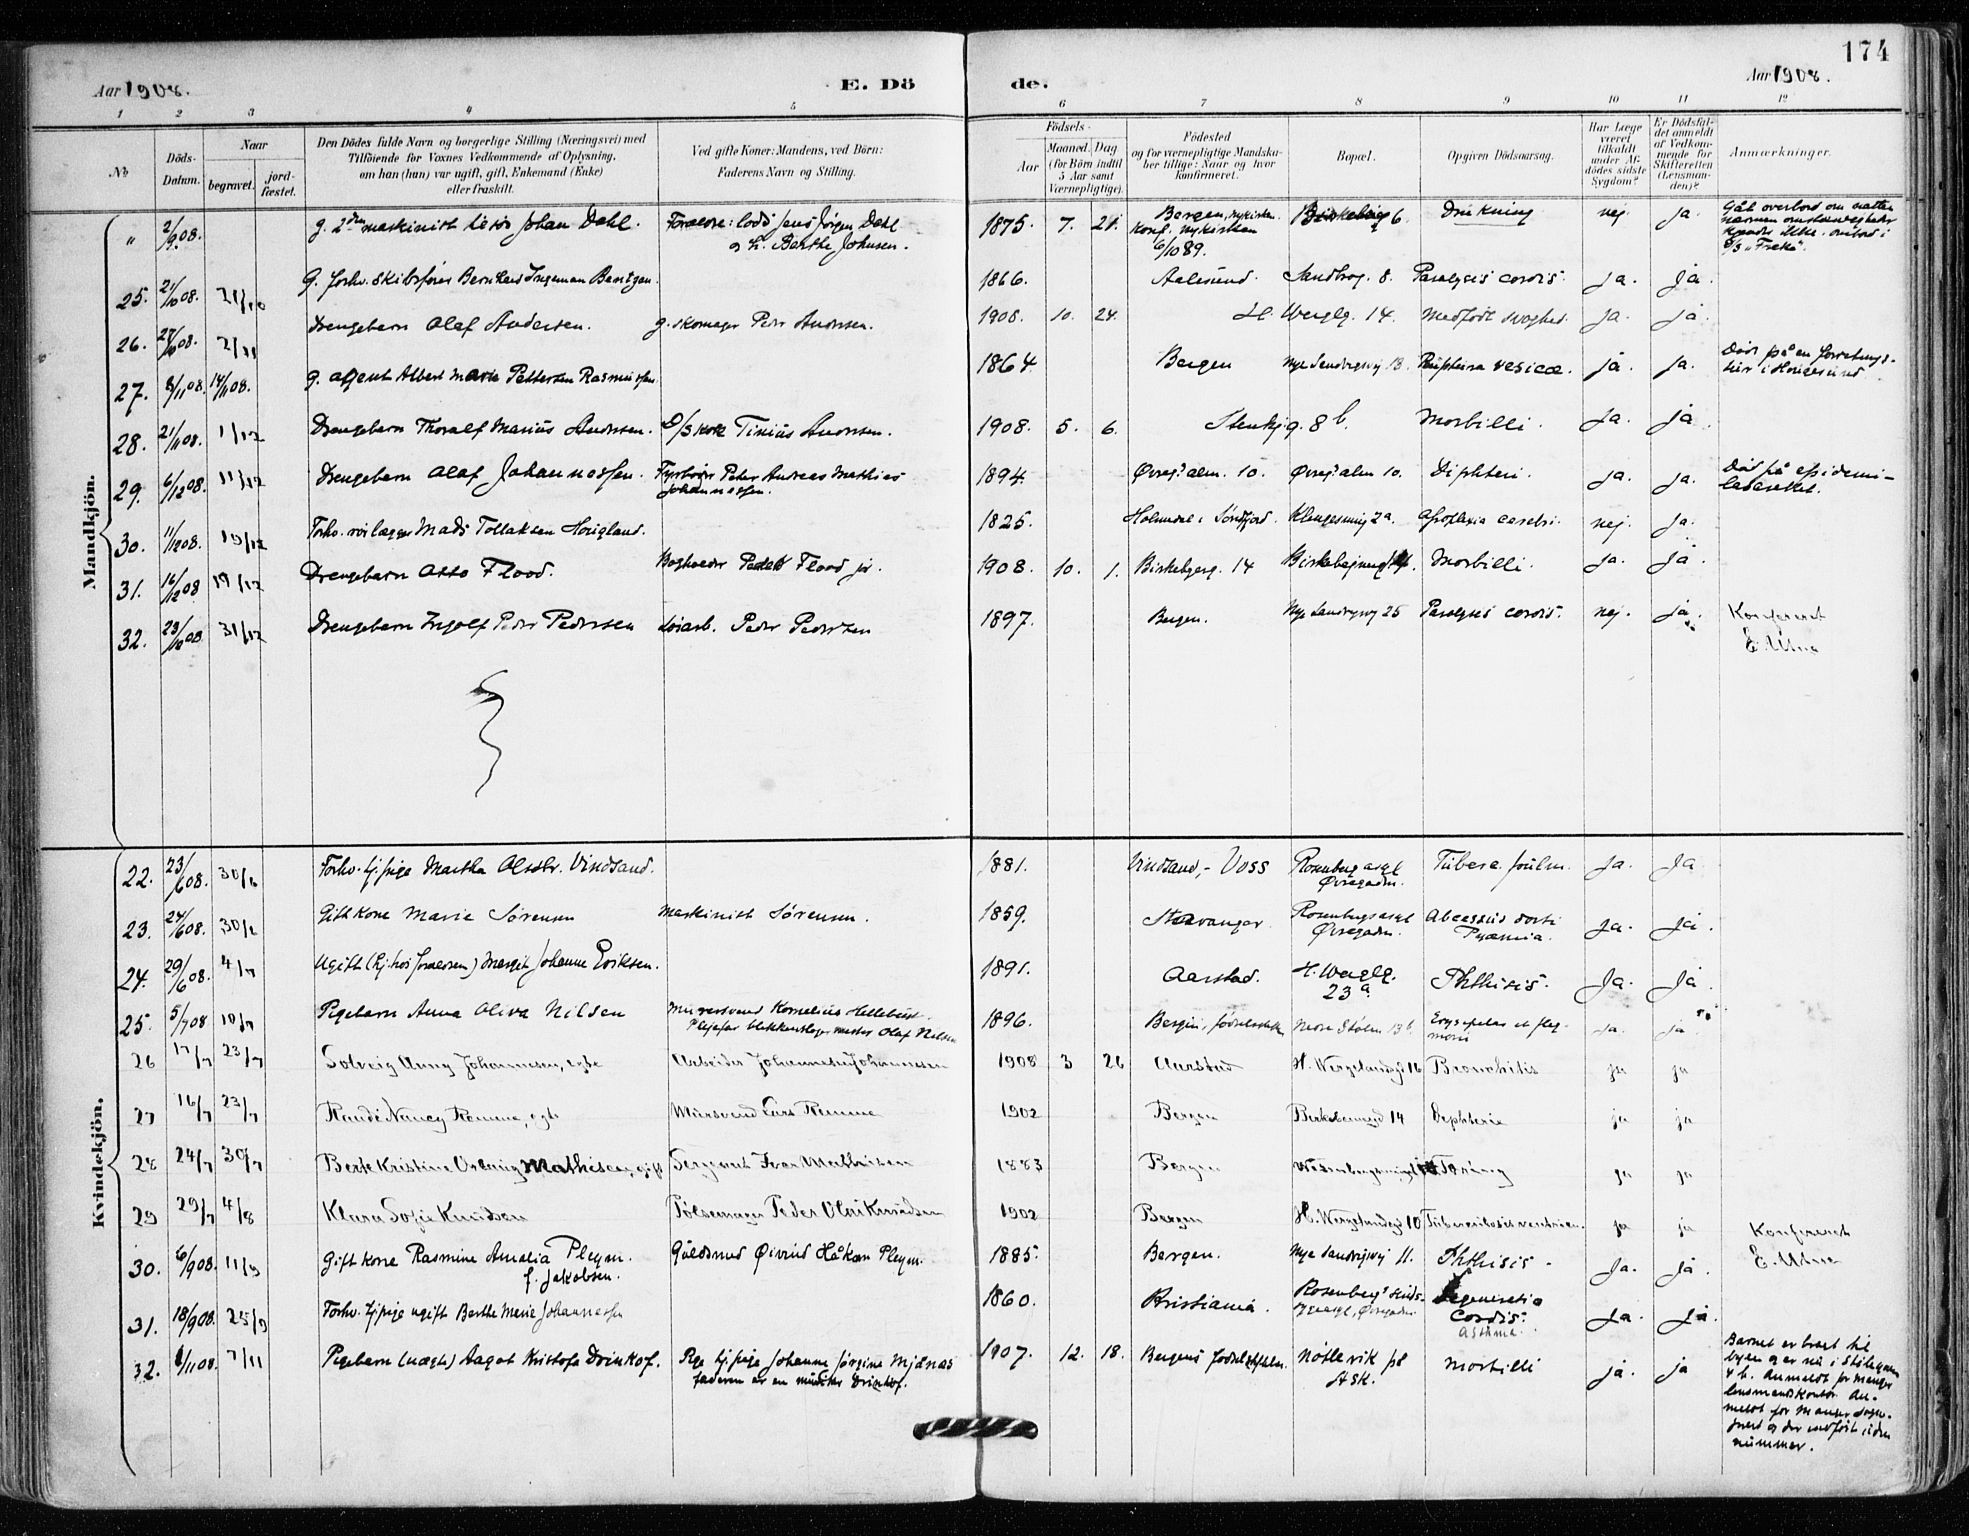 174
Aar 1908.
E. Dö
de.
Aar 1908.
1 2 3 4 5 6 7 8 9 10 11 12
No
Döds-
Datum.
Naar
begravet.
jord-
fæstet.
Den Dödes fulde Navn og borgerlige Stilling (Næringsvei) med
Tilföiende for Voxnes Vedkommende af Oplysning,
om han (hun) var ugift, gift, Enkemand (Enke)
eller fraskilt.
Ved gifte Koner: Mandens, ved Börn:
Faderens Navn og Stilling.
Födsels-
Aar
Maaned. Dag
(for Börn indtil
5 Aar samt
Værnepligtige).
Födested
og for værnepligtige Mandska-
ber tillige: Naar og hvor
konfirmeret.
Bopæl.
Opgiven Dödsaarsag.
Har Læge
været
tilkaldt
under Af-
dödes sidste
Sygdom?
Er Dödsfal-
det anmeldt
af Vedkom-
mende for
Skifteretten
(Lensman-
den)?
Anmærkninger.
Mandkjön.
" 2/9 08. g. 2den maskinist Johan Dahl. Forældre: lods Jens Jørgen Dahl 1875. 7. 21. Bergen, nykirken 6. Drukning nej. ja. Gåt overbord om natten
og h. Berthe Johnsen. konf. nykirken
6/10 89. "Freke".
25. 21/10 08. g. forhv. skibsfører Bernhard Ingeman Bentzen. 1866. Aalesund. Sandbrog. 8. Paralysis cordis. ja. ja.
26. 27/10 08. 2/11 Drengebarn Olaf Andersen. g. skomager Peder Andersen. 1908. 10. 24. H. Wergelg. 14. Medfødt svaghed. ja. ja.
27. 8/11 08. 14/11 08. g. agent Albert Marie Pettersen Rasmussen. 1864 Bergen Nye Sandvigsvej 13. Ruptura vesicæ. ja. ja. Død på en forretnings-
28. 21/11 08. 1/12 Drengebarn Thoralf Marius Andersen. D/S kok Tinius Andersen. 1908. 5. 6. Stenkjg. 8 b. Morbilli. ja. ja
29. 6/12 08. 11/12 Drengebarn Olaf Johannessen. Fyrbøder Peter Andreas Mathias 1894. Øvreg. alm. 10. Øvreg. alm 10. Diphteri. ja. ja. Død på epidemi-
Johannessen. lasarettet.
30. 11/12 08. 19/12 Mads Tollaksen Hougland. 1825. Holmedal i Søndfjord. 2a. Apoplexia cerebri. nej. ja.
31. 16/12 08 19/12 Drengebarn Otto Flood. Bogholder Flood jr. 1908. 10. 1. Birkebgerg. 14 Morbilli. ja. ja.
32. 31/12 Drengebarn Ingolf Peder Pedersen Peder Pedersen 1897. Bergen. Nye Sandvigsvej 25 Paralysis cordis. nej. ja. Konfereret
E. Utne
Kvindekjön.
22. 23/6 08. 30/6 Forhv. tj.pige Martha Olsdtr. Vindsand. 1881. Vindsand, - Voss Rosenberg asyl Tuberc. pulm. ja. ja
Øvregaden.
23. 24/6 08. 30/6 Gift kone Marie Sørensen Maskinist Sørensen. 1859. Stavanger Rosenbergs asyl Abcessus dorsi ja. ja.
Øvregaden. Pyæmia.
24. 29/6 08. 4/7 Ugift (tj. hos forældrene) Margit Johanne Eriksen. 1891. Aarstad. H. Wergelg. Phthisis. ja. ja
23 a.
25. 5/7 08 10/7 Pigebarn Anna Oliva Nilsen Murersvend Kornelius Hellebust. 1896. Bergen, fødselsstiftelsen ja. ja
Plejefar blikkenslagermester Olaf Nilsen
26 17/7 23/7 Solveig Anny Johannesen, egte Arbeider Johannes Johannesen 1908 3 26 Aarstad H. Wergelandsg 16 Bronchitis ja ja
27 16/7 23/7 Nancy Remme, egte Murersvend Lars Remme 1902 Bergen Birkebeinergd 14 Diphterie ja ja
28 24/7 30/7 Berte Kristine Mathisen, gift Sergeant Iver Mathisen 1883 Bergen ja ja
29 29/7 4/8 Klara Sofie Knudsen Pølsemager Peder Olai Knudsen 1902 Bergen H. Wergelandsg 10 ja ja Konfereret
30. 6/9 08. 11/9 Gift kone Rasmine Amalia Pleym. Guldsmed Øivind Håkon Pleym. 1885. Bergen. Nye Sandvigsvej 11. Phthisis. ja. ja E. Utne
f. Jakobsen.
31. 18/9 08. 25/9 Forhv. tj.pige ugift Berthe Marie Johannessen 1860. Kristiania. Degeneratio ja. ja.
Cordis.
Asthma.
32. 7/11 Pigebarn (uægte) Aagot Kristofa Drinkof. Pige tj.pige Johanne Jørgine Mjånes 1907. 12. 18. Bergens fødselsstiftelse. Nøtlevik på Morbilli ja. ja Barnet er bragt til
faderen er en murer Drinkof. Ask. byen og er nu i Stølegaden
4 b. Anmeldt for Manger
lensmandskontor. An-
meldt for Manger sogne-
prest og der indført uden
nummer.